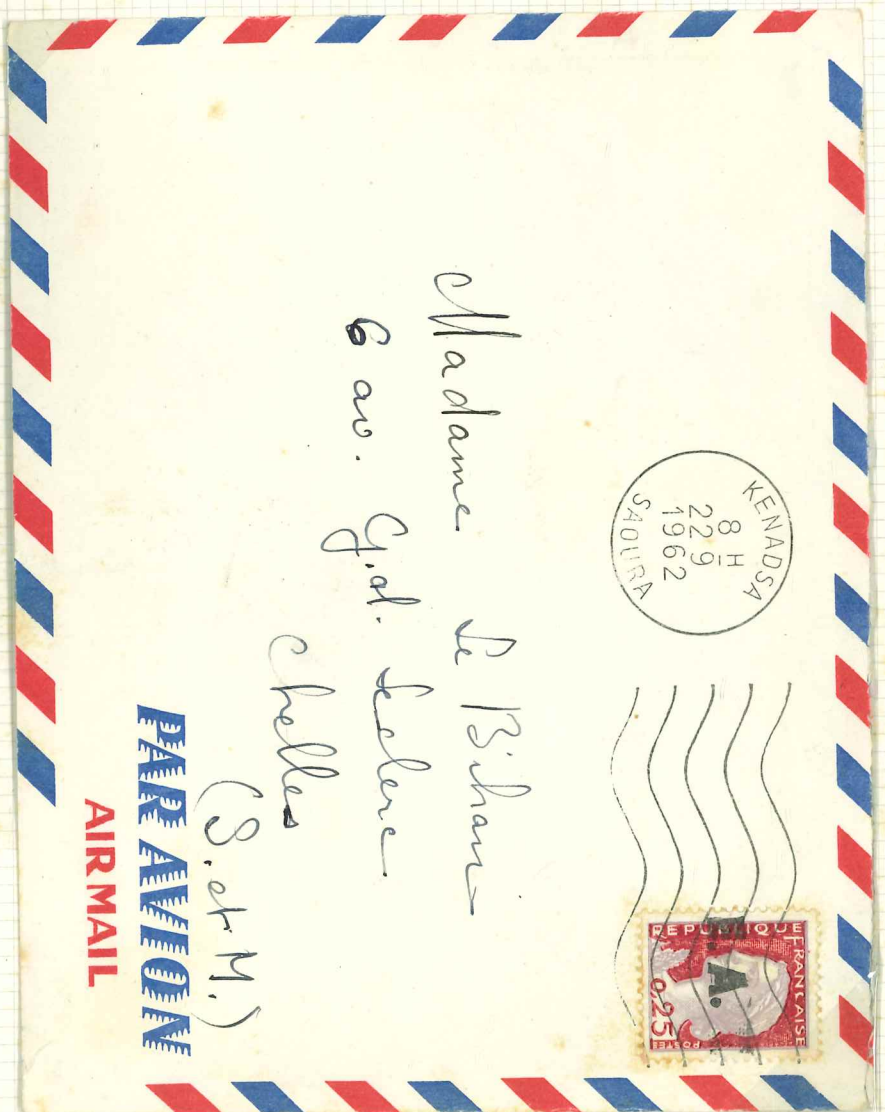 KENADSA
8 H
22 9
1962
SAOURA
REPUBLIQUE FRANCAISE
E.A.
0,25
POSTES
Madame Le Bihan
6 av. Gal. Leclerc
Chelles
(S. et M.)
PAR AVION
AIR MAIL